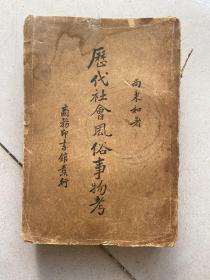 尚秉和著
歷代社會風俗事物考
商務印書館發行